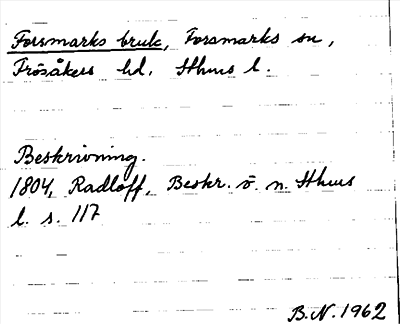 Forsmarks bruk, Forsmarks sn,
Frösåkers hd. Sthms l.
Beskrivning.
1804, Radloff, Beskr. ö. n. Sthms
l. s. 117
B.N. 1962